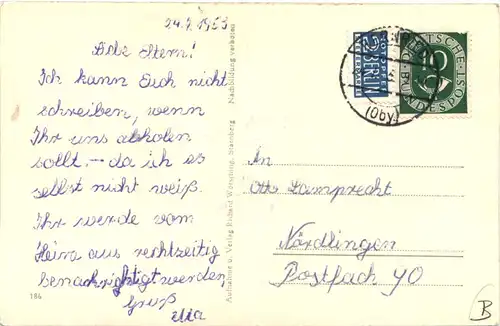 24.7.1953
Liebe Eltern!
Ich kann Euch nicht
schreiben, wenn
Ihr uns abholen
sollt. – da ich es
selbst nicht weiß.
Ihr werde vom
Heim aus rechtzeitig
benachrichtigt werden
Gruß
186
Aufnahme u. Verlag Richard Wörsching, Starnberg
Nachdildung verboten
NOTOPFER
2 BERLIN
STEUERMARKE
DEUTSCHE
BUNDESPOST
An
Otto Lamprecht
Nördlingen
Postfach 40
B